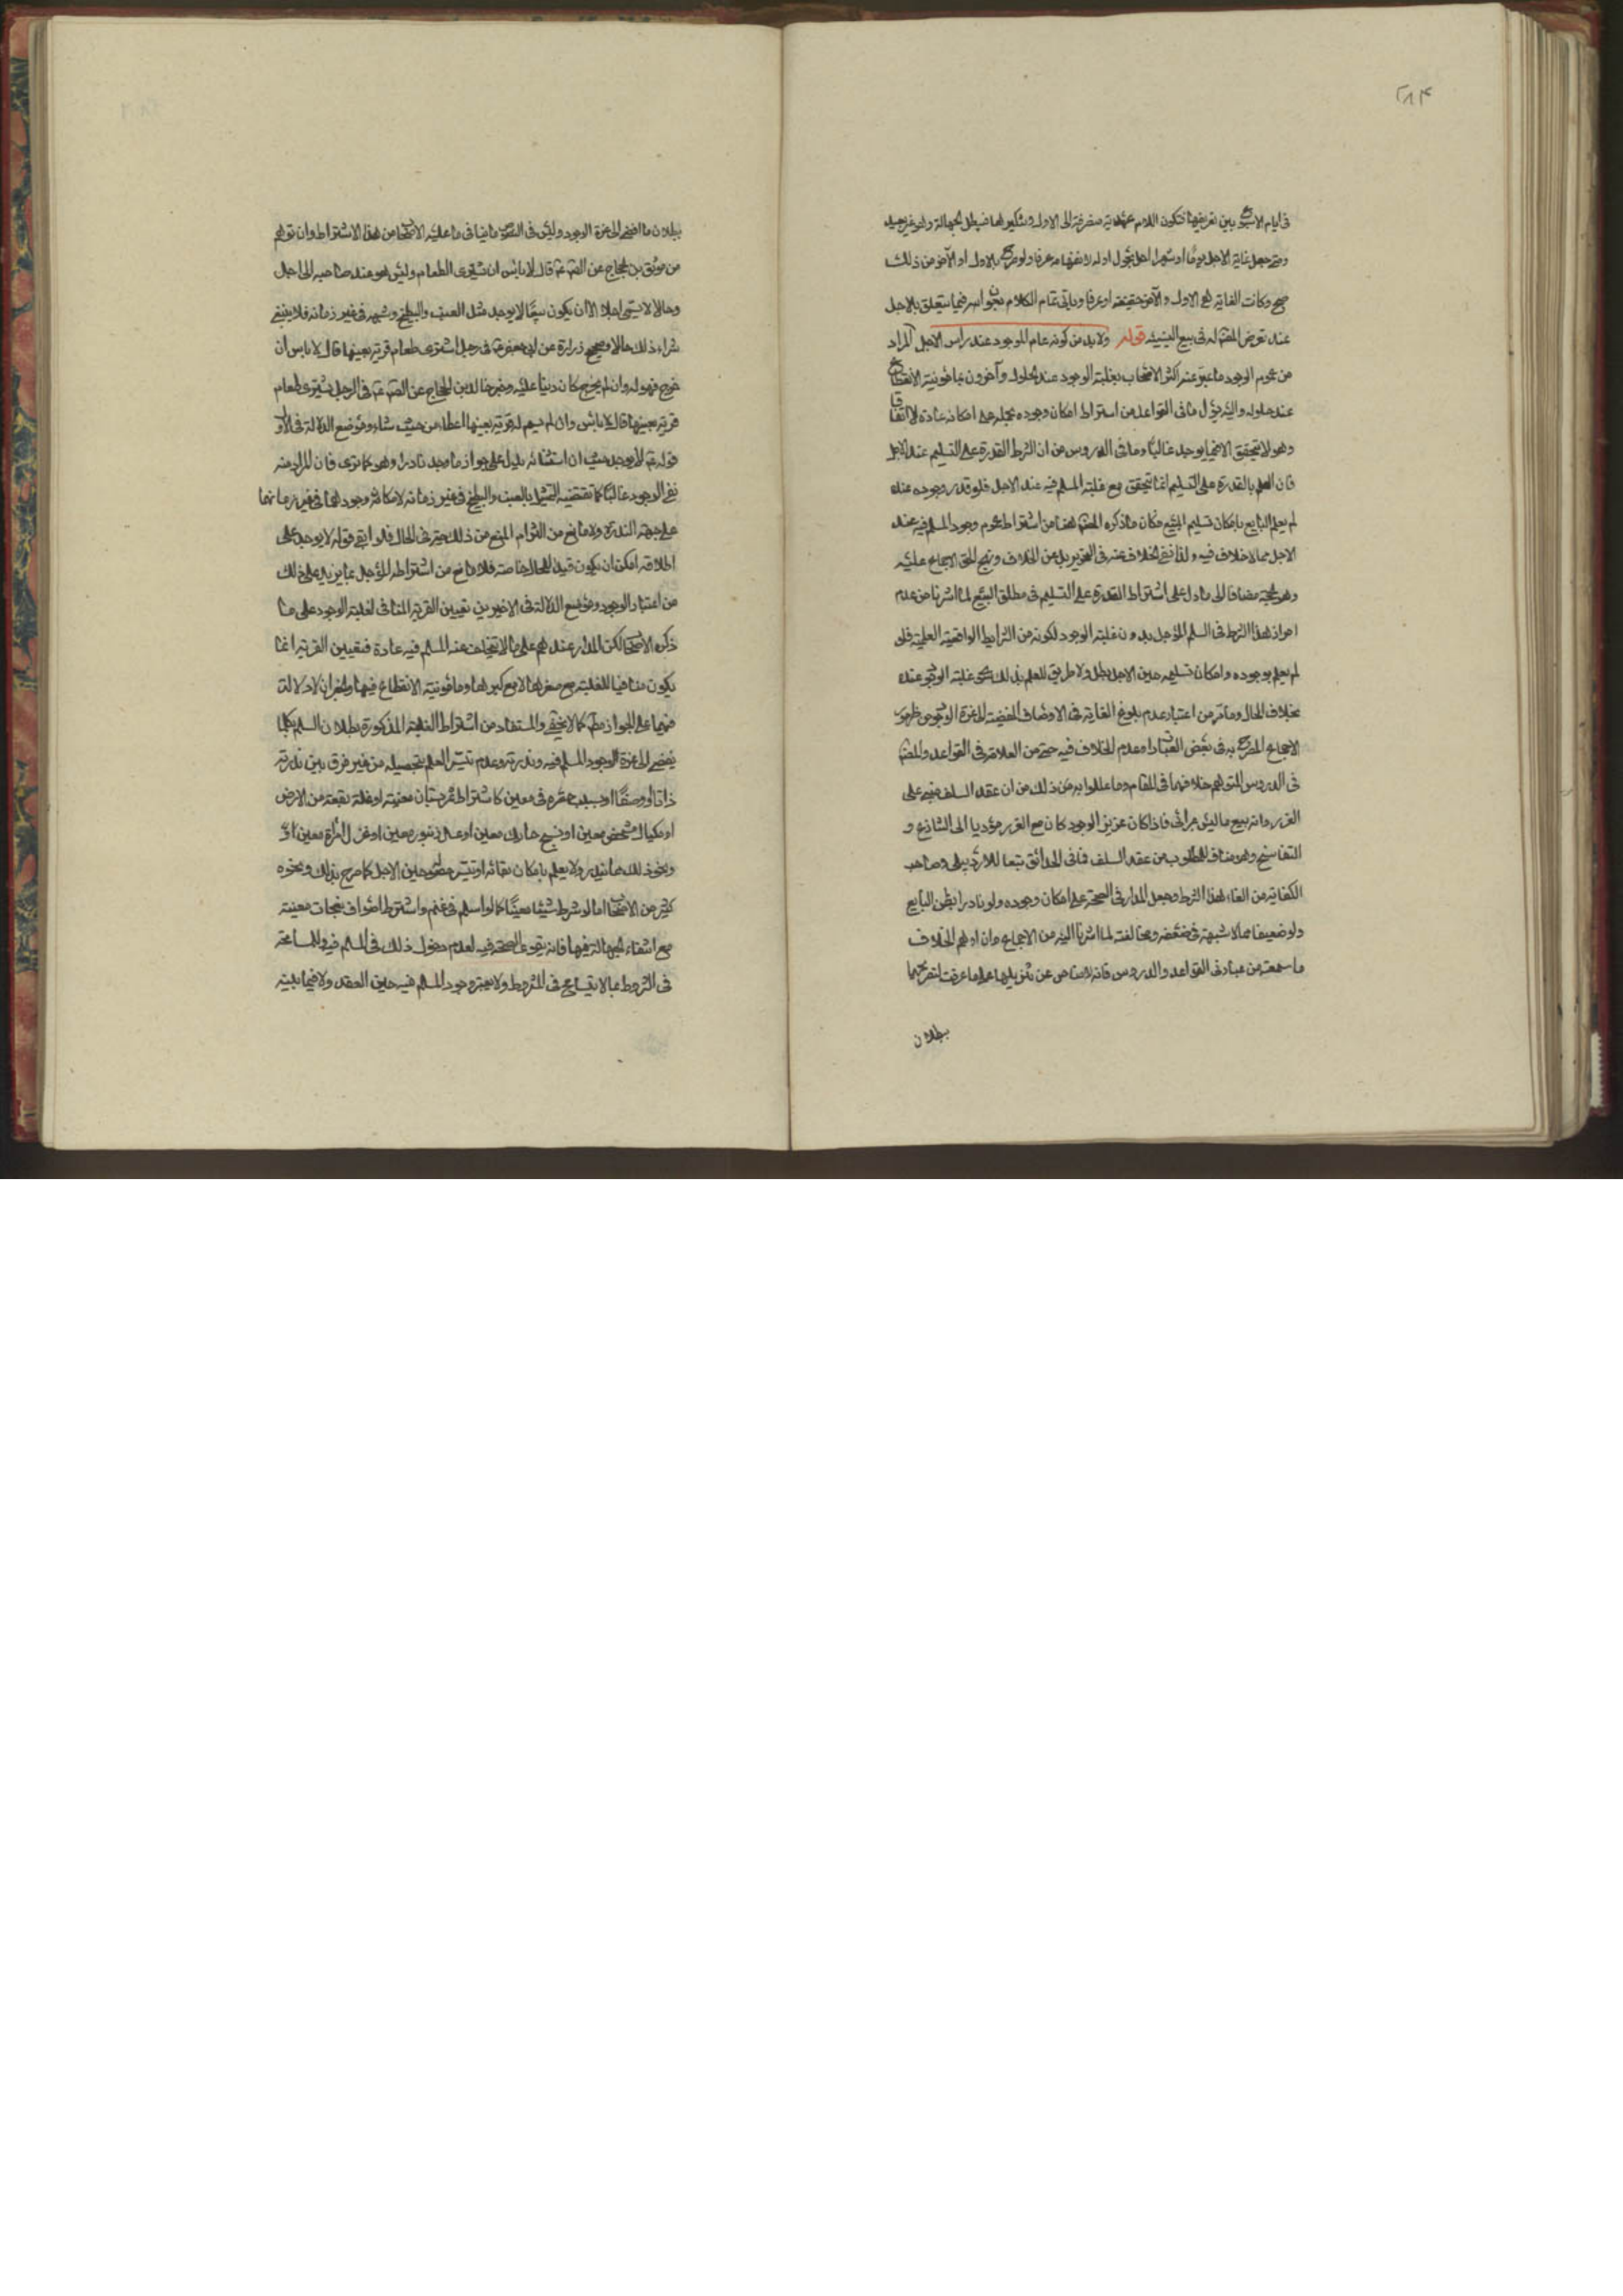 ٢٨٤
في ايام الاسبوع بين تعريفها فتكون اللام عهدية منصرفة الى الاول وتنكيرها فيبطل للجهالة
ومتى جعل غاية الاجل يوما او شهرا احل بحلول اوله لا عرفا ولو صرح بالاول او الآخر من ذلك
صح وكانت الغاية هو الاول والآخر حقيقة او عرفا وياتي تمام الكلام فيما يتعلق بالاجل
عند تعرض المصنف له في بيع النسيئة قوله ولا بد من كونه عام الوجود عند راس الاجل المراد
من عموم الوجود ما عبر عنه اكثر الاصحاب بغلبة الوجود عند الحلول وآخرون بمامونية الانقطاع
عند حلوله واليه يؤل ما في القواعد من اشتراط امكان وجوده بحمله على امكانه عادة لا اتفاقا
وهو لا يتحقق الا فيما يوجد غالبا وما في الدروس من ان الشرط القدرة على التسليم عند الاجل
فان العلم بالقدرة على التسليم انما يتحقق مع غلبة المسلم فيه عند الاجل فلو قدر وجوده عنده
لم يعلم البايع بامكان تسليم المبيع فكان ما ذكره المصنف هنا من اشتراط عموم وجود المسلم فيه عند
الاجل مما لا خلاف فيه ولذا نفى الخلاف عنه في التحرير بل عن الخلاف ونهج الحق الاجماع عليه
وهو الحجة مضافا الى ما دل على اشتراط القدرة على التسليم في مطلق البيع لما اشرنا من عدم
احراز هذا الشرط في السلم المؤجل بدون غلبة الوجود لكونه من الشرايط الواقعية العلمية فلو
لم يعلم بوجوده وامكان تسليمه حين الاجل بطل ولا طريق للعلم بذلك سوى غلبة الوجود عنده
بخلاف الحال وما مر من اعتبار عدم بلوغ الغاية في الاوصاف المفضية لعزة الوجود من ظهور
الاجماع المصرح به في بعض العبارات وعدم الخلاف فيه حتى من العلامة في القواعد والمصنف
في الدروس المتوهم خلافهما في المقام وما عللوا به من ذلك من ان عقد السلف مبني على
الغرر وانه بيع ما ليس بمرائى فاذا كان عزيز الوجود كان مع الغرر مؤديا الى التنازع و
التفاسخ وهو مناف للمطلوب من عقد السلف فما في الحدائق تبعا للاردبيلي وصاحب
الكفاية من الغاء هذا الشرط وجعل المدار في الصحة على امكان وجوده ولو نادرا بظن البايع
ولو ضعيفا مما لا شبهة في ضعفه ومخالفته لما اشرنا اليه من الاجماع وان اوهم الخلاف
ما سمعته من عبارتي القواعد والدروس فانه لا مناص عن تنزيلها على ما عرفت لتصريحهما
بطلان
ببطلان ما افضى الى عزة الوجود وليس في النصوص ما ينافي ما عليه الاصحاب من هذا الاشتراط وان توهم
من موثق بن الحجاج عن الصادق ع قال لا باس ان تشتري الطعام وليس هو عند صاحبه الى اجل
وحالا لا يسمى اجلا الا ان يكون بيعا لا يوجد مثل العنب والبطيخ وشبهه في غير زمانه فلا ينبغي
شراء ذلك حالا وصحيح زرارة عن ابي جعفر ع في رجل اشترى طعام قرية بعينها قال لا باس ان
خرج فهو له وان لم يخرج كان دينا عليه وخبر خالد بن الحجاج عن الصادق ع في الرجل يشترى طعام
قرية بعينها قال لا باس وان لم يسم له قرية بعينها اعطاه من حيث شاء وموضع الدلالة في الاول
قوله ع لا يوجد حيث ان استثنائه يدل على جواز ما وجد نادرا وهو كما ترى فان المراد منه
نفي الوجود غالبا كما تقتضيه التمثيل بالعنب والبطيخ في غير زمانه لامكان وجودهما في غير زمانهما
على جهة الندرة ولا مانع من التزام المنع من ذلك حتى في الحال فلو ابقى قوله لا يوجد على
اطلاقه امكن ان يكون قيدا للحال خاصة فلا مانع من اشتراطه للمؤجل بما يزيد على ذلك
من اعتبار الوجود وموضع الدلالة في الاخيرين تعيين القرية المنافي لغلبة الوجود على ما
ذكره الاصحاب لكن المدار عندهم على ما لا يتخلف عنه المسلم فيه عادة فتعيين القرية انما
يكون منافيا للغلبة مع صغرها لا مع كبرها ومامونية الانقطاع فيها والخبران لا دلالة
فيهما على الجواز مطلقا كما لا يخفى والمستفاد من اشتراط الغلبة المذكورة بطلان السلم بكلما
يفضي الى عزة الوجود المسلم فيه وندرته وعدم تيسر العلم بتحصيله من غير فرق بين ندرته
ذاتا او وصفا او بسبب حصره في معين كاشتراط ثمرة بستان معينة او غلة بقعة من الارض
او مكيال شخص معين او نسج حايك معين او عسل زنبور معين او غزل امرأة معينة او
ونحو ذلك مما يندر ولا يعلم بامكان بقائه او تيسر حصوله حين الاجل كما صرح بذلك ونحوه
كثير من الاصحاب اما لو شرط شيئا معينا كما لو اسلم في غنم واشترط اصواف نعجات معينة
مع انتفاء الجهالة فيها فانه يقوى الصحة فيه لعدم دخول ذلك في المسلم فيه وللمسامحة
في الشروط بما لا يتسامح في المشروط ولا يعتبر وجود المسلم فيه حين العقد ولا فيما بينه